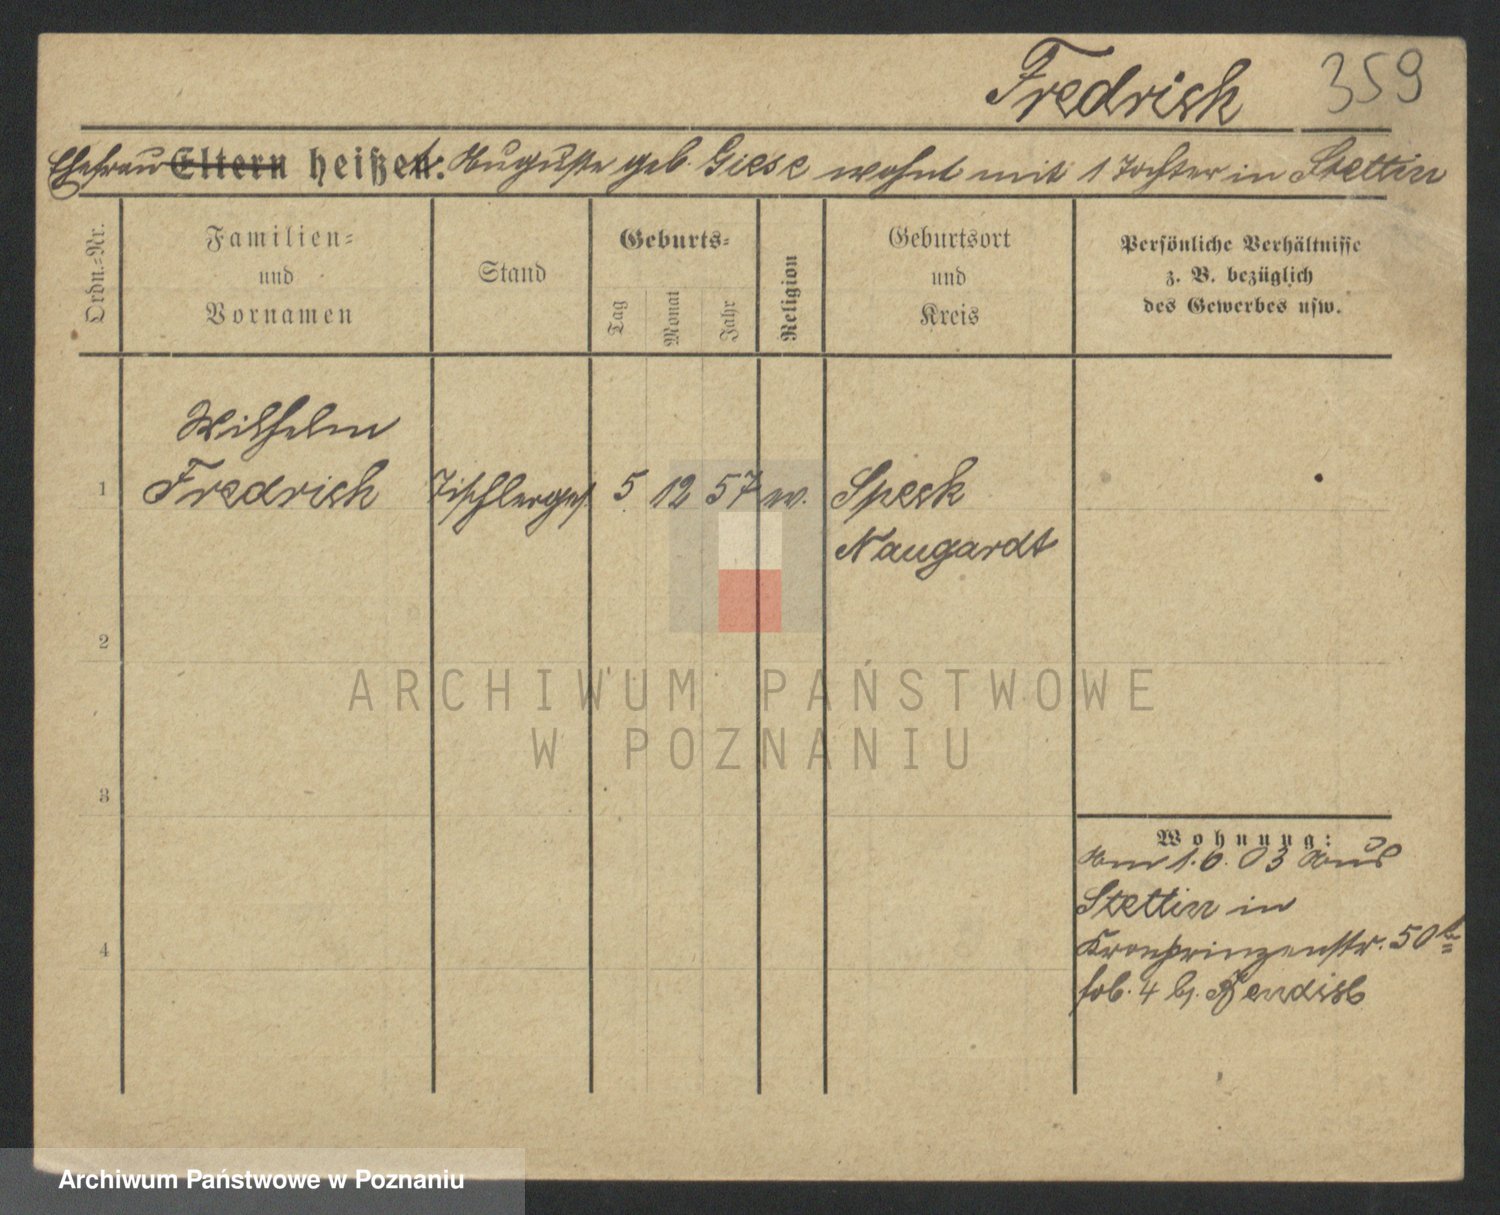 Fredrich 359
Ehefrau Eltern heißen: Auguste geb. Giese wohnt mit 1 Tochter in Stettin
Ordn.-Nr.
Familien-
und
Vornamen
Stand
Geburts-
Tag
Monat
Jahr
Religion
Geburtsort
und
Kreis
Persönliche Verhältnisse
z. B. bezüglich
des Gewerbes usw.
Wilhelm
1 Fredrich Tischlerges. 5 12 57 ev. Speck
Naugardt
2
3
4
Wohnung:
Am 1.6.03 aus
Stettin in
Kronprinzenstr. 50
4 b.
ARCHIWUM PAŃSTWOWE
W POZNANIU
Archiwum Państwowe w Poznaniu